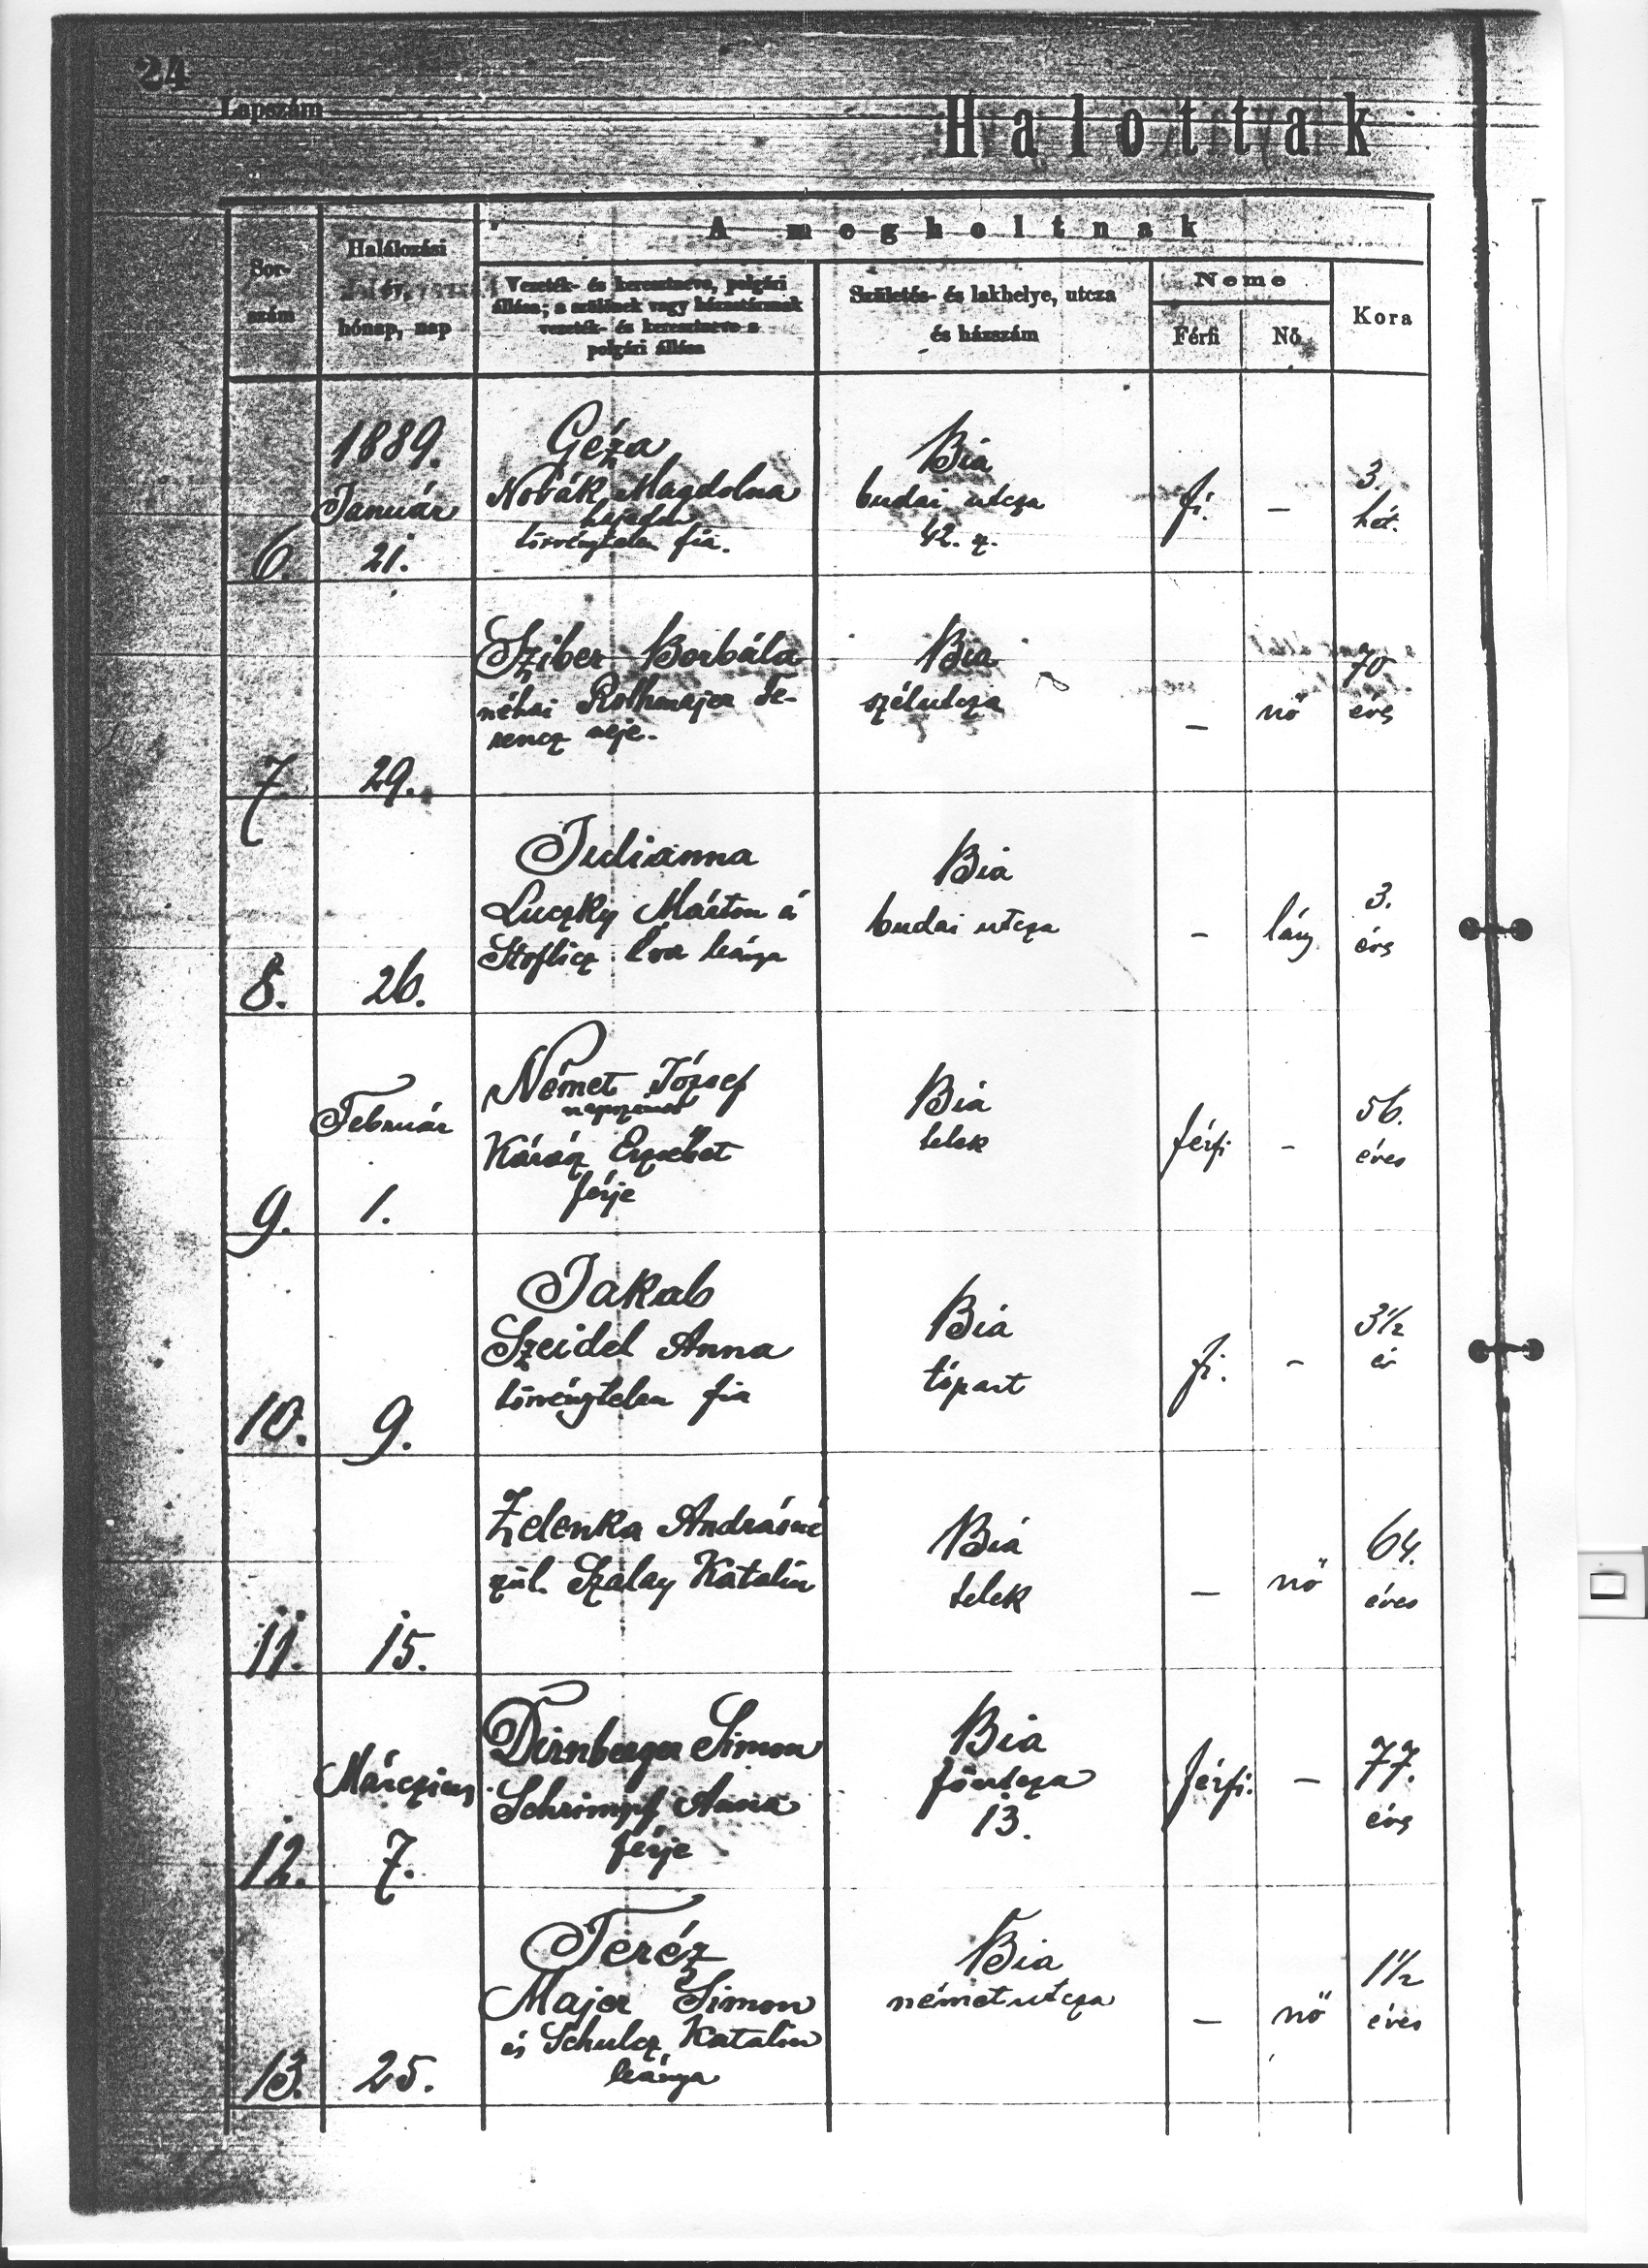 24
Lapszám
Halottak
A megholtnak
Sor-
szám
Halálozási
év,
hónap, nap
Vezeték- és keresztneve, polgári
állása; a szülőnek vagy házastársnak
vezeték- és keresztneve s
polgári állása
Születés- és lakhelye, utcza
és házszám
Neme
Férfi
Nő
Kora
6.
1889.
Január
21.
Géza
Novák Magdolna
hajadon
törvénytelen fia.
Bia
budai utcza
42.
fi.
–
3.
hét.
7
29.
Sziber Borbála
néhai Rothmajer Fe-
rencz neje.
Bia
szélutcza
–
nő
70
éves
8.
26.
Julianna
Luczky Márton é
Stoflicz Éva leánya
Bia
budai utcza
–
lány
3.
éves
9.
Február
1.
Német József
napszámos
Káráz Erzsébet
férje
Bia
telek
férfi
–
56.
éves
10.
9.
Jakab
Szeidel Anna
törvénytelen fia
Bia
tópart
fi.
–
3 1/2
év
11.
15.
Zelenka Andrásné
szül. Szalay Katalin
Bia
telek
–
nő
64.
éves
12.
Márczius
7.
Dirnberger Simon
Schrimpf Anna
férje
Bia
főutcza
13.
férfi.
–
77.
éves
13.
25.
Teréz
Majer Simon
és Schulcz Katalin
leánya
Bia
németutcza
–
nő
1 1/2
éves